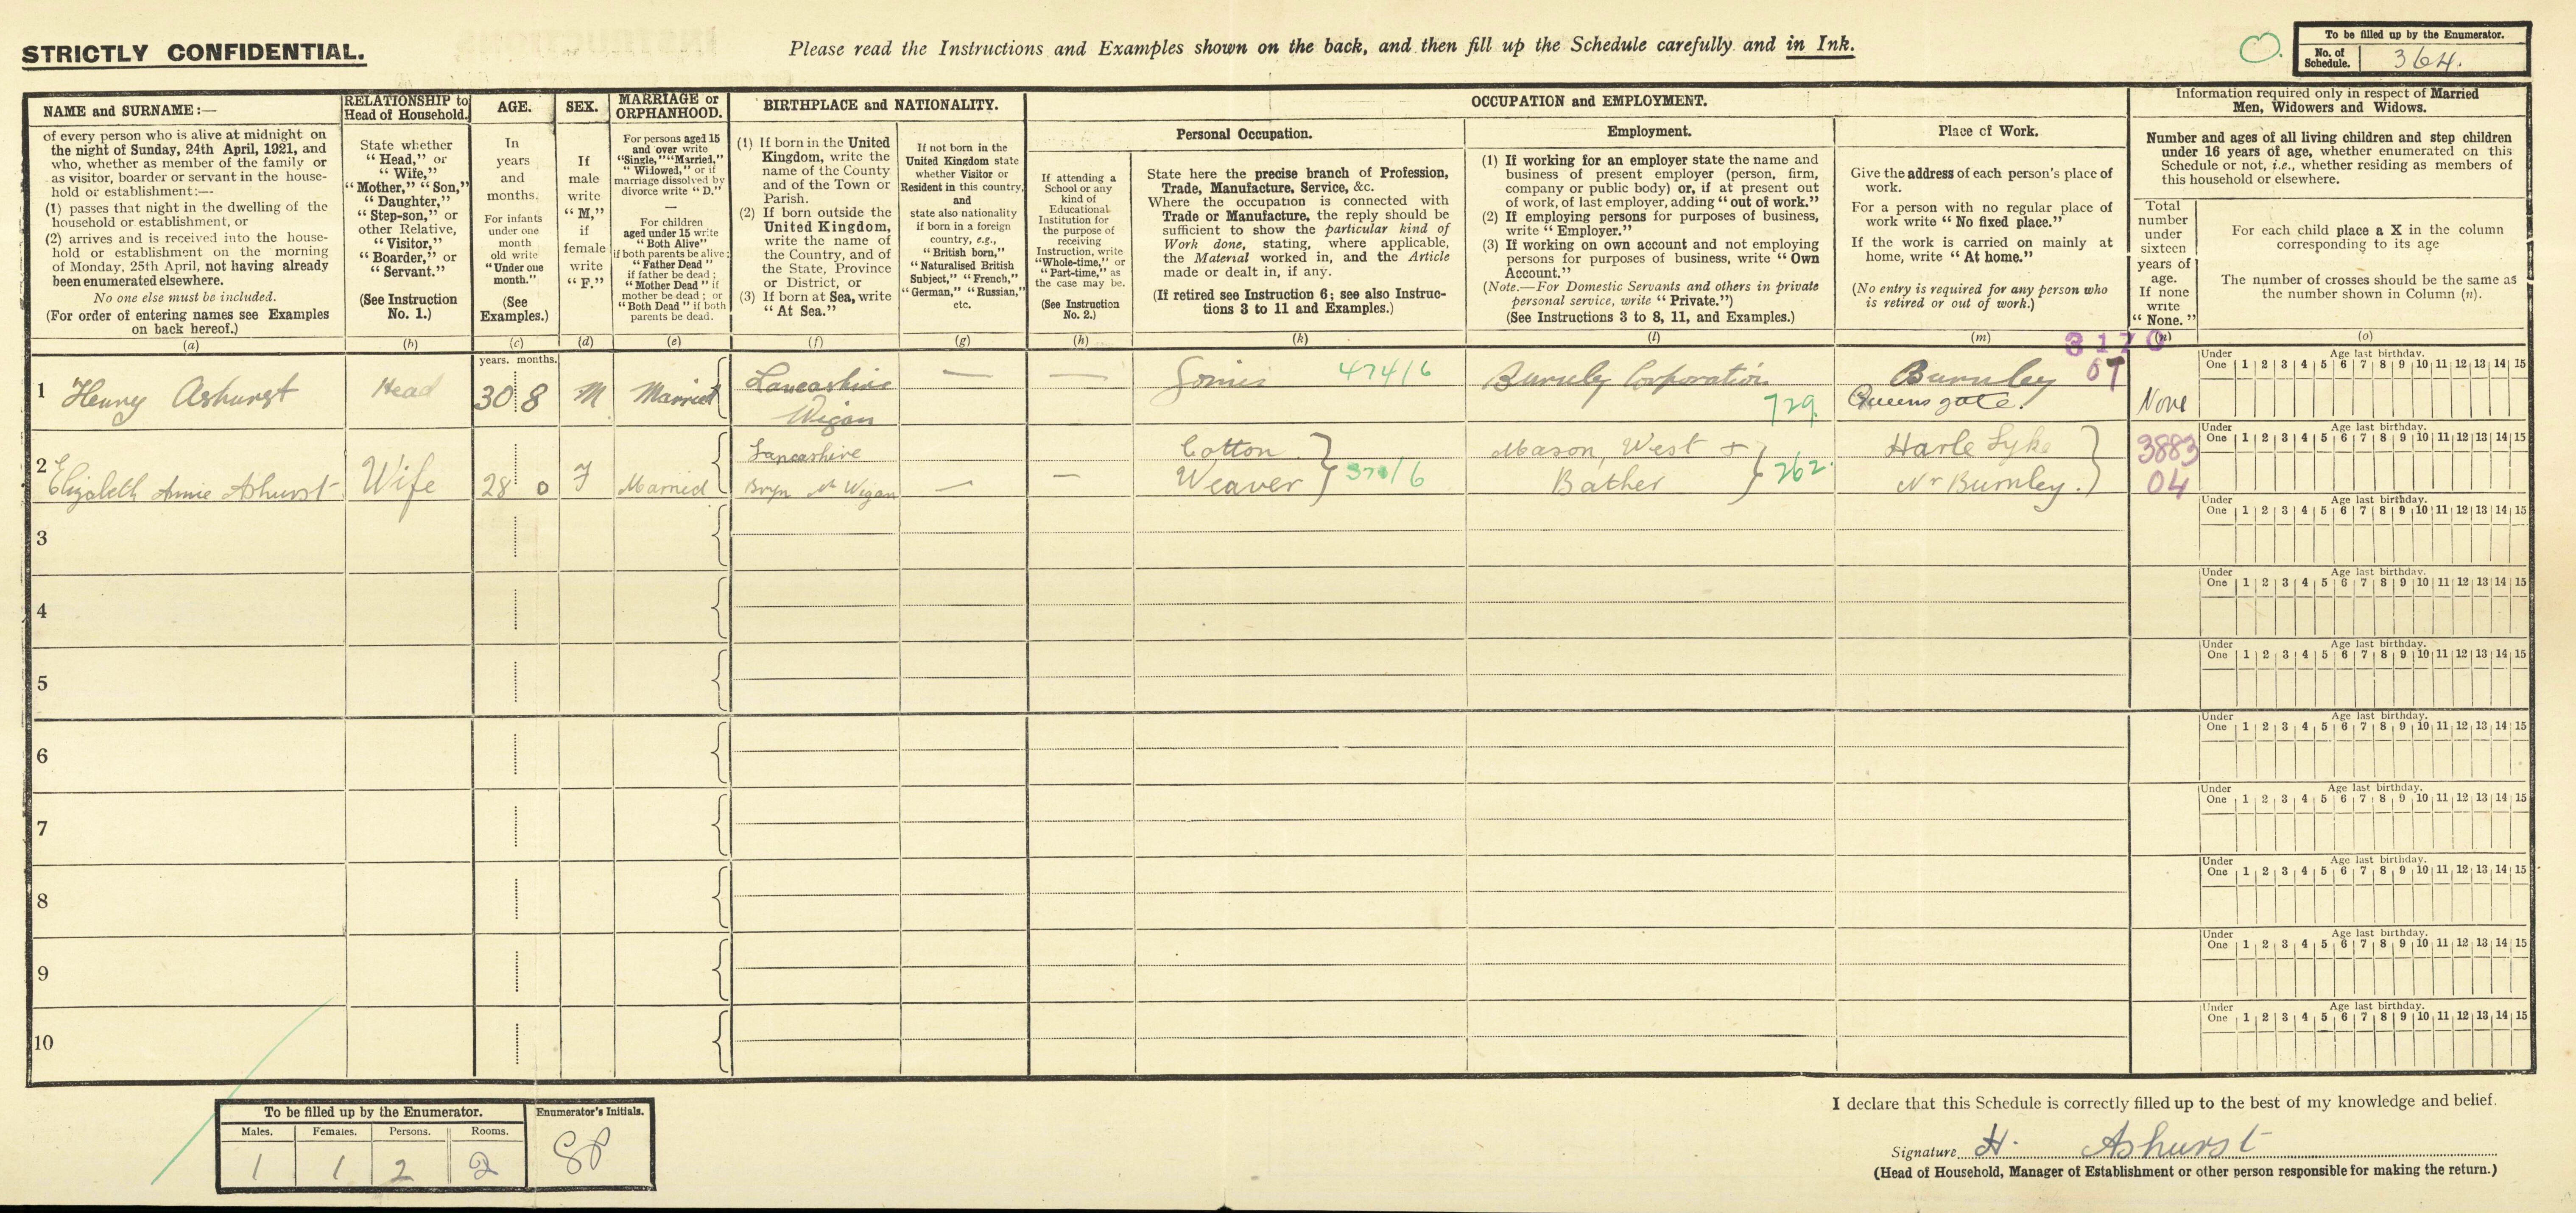 STRICTLY CONFIDENTIAL.
Please read the Instructions and Examples shown on the back, and then fill up the Schedule carefully and in Ink.
To be filled up by the Enumerator.
No. of Schedule. 364.
NAME and SURNAME:—
of every person who is alive at midnight on
the night of Sunday, 24th April, 1921, and
who, whether as member of the family or
as visitor, boarder or servant in the house-
hold or establishment:—
(1) passes that night in the dwelling of the
household or establishment, or
(2) arrives and is received into the house-
hold or establishment on the morning
of Monday, 25th April, not having already
been enumerated elsewhere.
No one else must be included.
(For order of entering names see Examples
on back hereof.)
(a)
RELATIONSHIP to
Head of Household.
State whether
"Head," or
"Wife,"
"Mother," "Son,"
"Daughter,"
"Step-son," or
other Relative,
"Visitor,"
"Boarder," or
"Servant."
(See Instruction
No. 1.)
(b)
AGE.
In
years
and
months.
For infants
under one
month
old write
"Under one
month."
(See
Examples.)
(c)
SEX.
If
male
write
"M,"
if
female
write
"F."
(d)
MARRIAGE or
ORPHANHOOD.
For persons aged 15
and over write
"Single," "Married,"
"Widowed," or if
marriage dissolved by
divorce write "D."
—
For children
aged under 15 write
"Both Alive"
if both parents be alive;
"Father Dead"
if father be dead;
"Mother Dead" if
mother be dead; or
"Both Dead" if both
parents be dead.
(e)
BIRTHPLACE and NATIONALITY.
(1) If born in the United
Kingdom, write the
name of the County
and of the Town or
Parish.
(2) If born outside the
United Kingdom,
write the name of
the Country, and of
the State, Province
or District, or
(3) If born at Sea, write
"At Sea."
(f)
If not born in the
United Kingdom state
whether Visitor or
Resident in this country,
and
state also nationality
if born in a foreign
country, e.g.,
"British born,"
"Naturalised British
Subject," "French,"
"German," "Russian,"
etc.
(g)
OCCUPATION and EMPLOYMENT.
If attending a
School or any
kind of
Educational
Institution for
the purpose of
receiving
Instruction, write
"Whole-time," or
"Part-time," as
the case may be.
(See Instruction
No. 2.)
(h)
Personal Occupation.
State here the precise branch of Profession,
Trade, Manufacture, Service, &c.
Where the occupation is connected with
Trade or Manufacture, the reply should be
sufficient to show the particular kind of
Work done, stating, where applicable,
the Material worked in, and the Article
made or dealt in, if any.
(If retired see Instruction 6; see also Instruc-
tions 3 to 11 and Examples.)
(k)
Employment.
(1) If working for an employer state the name and
business of present employer (person, firm,
company or public body) or, if at present out
of work, of last employer, adding "out of work."
(2) If employing persons for purposes of business,
write "Employer."
(3) If working on own account and not employing
persons for purposes of business, write "Own
Account."
(Note.—For Domestic Servants and others in private
personal service, write "Private.")
(See Instructions 3 to 8, 11, and Examples.)
(l)
Place of Work.
Give the address of each person's place of
work.
For a person with no regular place of
work write "No fixed place."
If the work is carried on mainly at
home, write "At home."
(No entry is required for any person who
is retired or out of work.)
(m)
Information required only in respect of Married
Men, Widowers and Widows.
Number and ages of all living children and step children
under 16 years of age, whether enumerated on this
Schedule or not, i.e., whether residing as members of
this household or elsewhere.
Total
number
under
sixteen
years of
age.
If none
write
"None."
(n)
For each child place a X in the column
corresponding to its age
The number of crosses should be the same as
the number shown in Column (n).
(o)
years. months.
1 Henry Ashurst Head 30 8 M Married Lancashire Wigan — — 474/6 Burnley Corporation 729 Burnley Queensgate. None
Under One Age last birthday. 1 2 3 4 5 6 7 8 9 10 11 12 13 14 15
2 Elizabeth Annie Ashurst Wife 28 0 F Married Lancashire Bryn Nr Wigan — — Cotton Weaver Mason, West + Bather 262 Harle Syke Nr Burnley. 3883 04
Under One Age last birthday. 1 2 3 4 5 6 7 8 9 10 11 12 13 14 15
3
Under One Age last birthday. 1 2 3 4 5 6 7 8 9 10 11 12 13 14 15
4
Under One Age last birthday. 1 2 3 4 5 6 7 8 9 10 11 12 13 14 15
5
Under One Age last birthday. 1 2 3 4 5 6 7 8 9 10 11 12 13 14 15
6
Under One Age last birthday. 1 2 3 4 5 6 7 8 9 10 11 12 13 14 15
7
Under One Age last birthday. 1 2 3 4 5 6 7 8 9 10 11 12 13 14 15
8
Under One Age last birthday. 1 2 3 4 5 6 7 8 9 10 11 12 13 14 15
9
Under One Age last birthday. 1 2 3 4 5 6 7 8 9 10 11 12 13 14 15
10
Under One Age last birthday. 1 2 3 4 5 6 7 8 9 10 11 12 13 14 15
To be filled up by the Enumerator. Enumerator's Initials.
Males. Females. Persons. Rooms.
1 1 2 2
I declare that this Schedule is correctly filled up to the best of my knowledge and belief.
Signature H. Ashurst
(Head of Household, Manager of Establishment or other person responsible for making the return.)